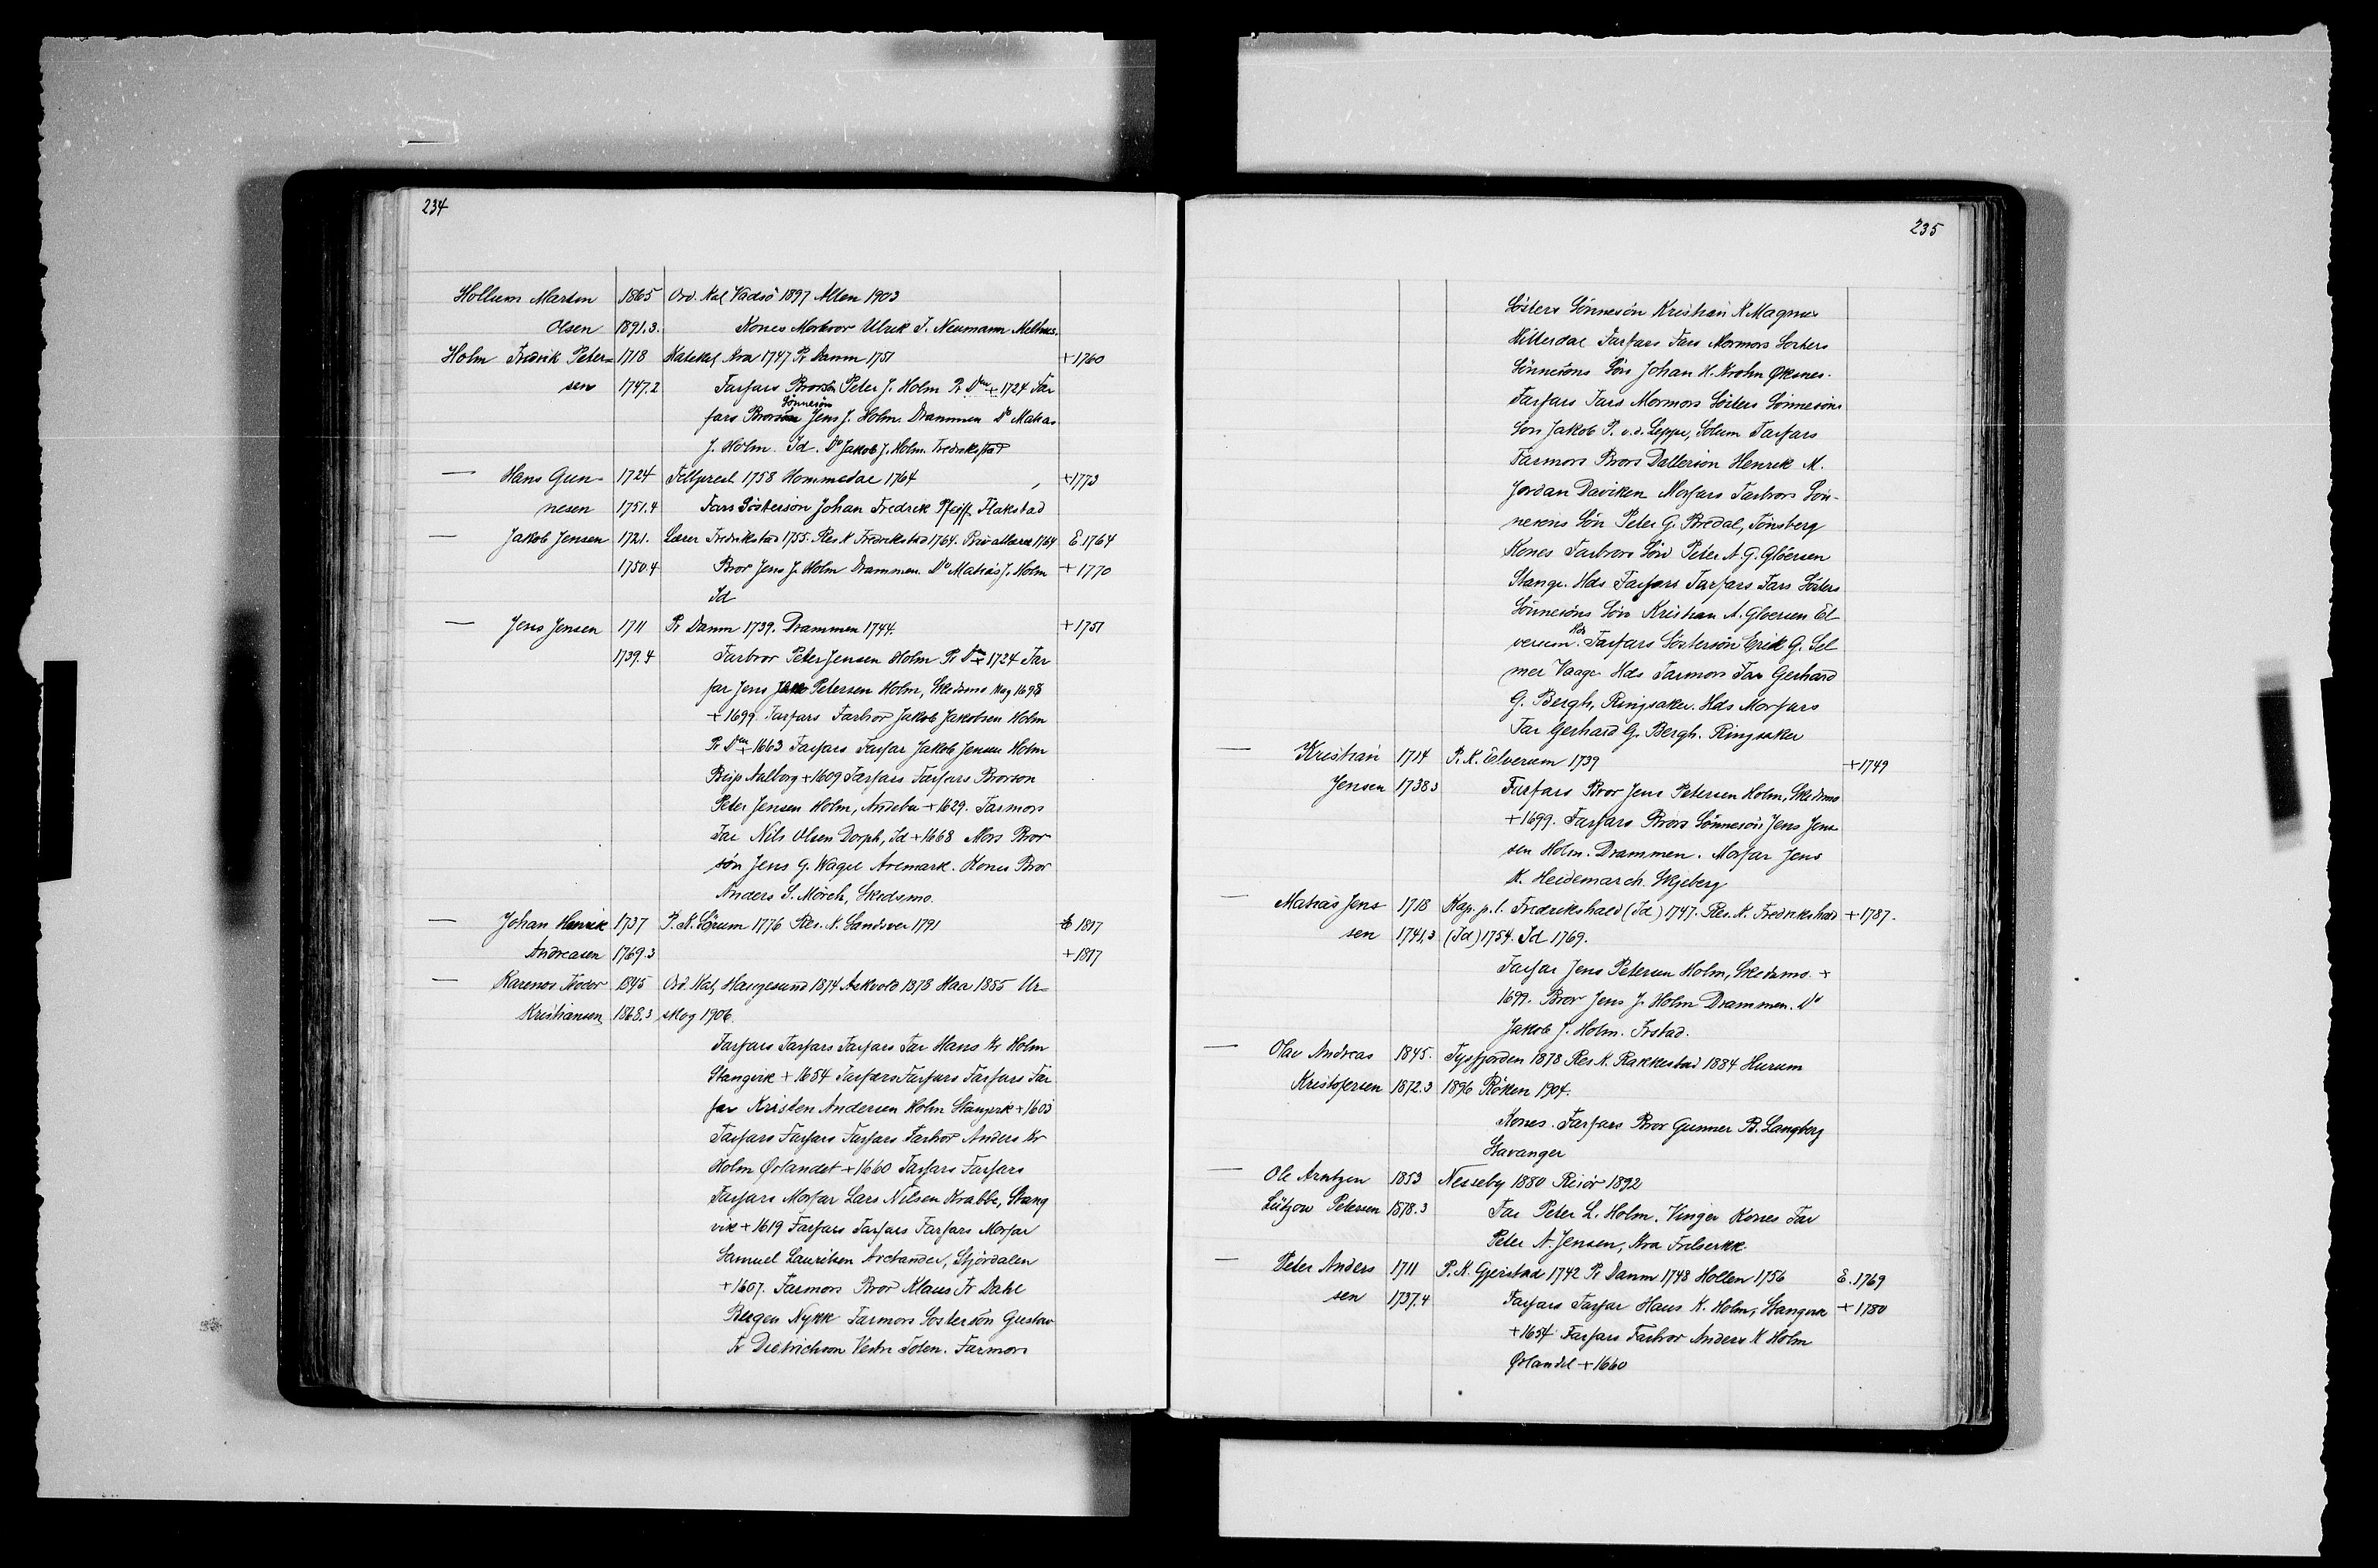 234
Hollum Martin 1865 Ord. Kat Vadsö 1897 Alten 1903
Olsen 1891.3. Kones Morbror Ulrik F. Neumann Melhus.
Holm Fredrik Peter= 1718 Katekat Kra 1747 Pr Danm 1751 +1760
sen 1747.2 Farfars Brorsön Peter J. Holm Pr Dm + 1724 Far
Sönnesön
fars Brors Jens J. Holm. Drammen Do Matias
J. Holm. Id. Do Jakob J. Holm. Fredrikstad
— Hans Gun= 1724 Feltprest 1758 Hommedal 1764 +1773
nesen 1751.4 Fars Söstersön Johan Fredrik Pfeiff Flakstad
— Jakob Jensen 1721. Lærer Fredrikstad 1755. Res K Fredrikstad 1764. Privatlærer 1764 E. 1764
1750.4 Bror Jens J. Holm Drammen. Do Matias J. Holm +1770
Id
— Jens Jensen 1711 Pr Danm 1739. Drammen 1744. +1751
1739.4 Farbror Peter Jensen Holm Pr Dm + 1724 Far
far Jens Petersen Holm, Skedsmo Mag 1698
+1699. Farfars Farbror Jakob Jakobsen Holm
Pr Dm + 1663 Farfars Farfar Jakob Jensen Holm
Bisp Aalborg +1609 Farfars Farfars Brorson
Peter Jensen Holm, Andebu +1629. Farmors
Far Nils Olsen Dorph, Id +1668 Mors Bror
sön Jens G. Wagel Aremark. Kones Bror
Anders S. Mörch, Skedsmo.
— Johan Henrik 1737 P. K. Sörum 1776 Res. K. Sandsver 1791 E 1817
Andreasen 1769.3 +1817
— Karenus Fredor 1845 Ord. Kat, Haugesund 1874 Askvold 1878 Haa 1885 Ur=
Kristiansen 1868.3 skog 1906.
Farfars Farfars Farfars Far Hans Kr Holm
Stangvik +1654 Farfars Farfars Farfars Far
far Kristen Andersen Holm Stangvik +1603
Farfars Farfars Farfars Farbror Anders Kr
Holm Ørlandet +1660 Farfars Farfars
Farfars Morfar Lars Nilsen Krabbe, Stang
vik +1619 Farfars Farfars Farfars Morfar
Samuel Lauritsen Arctander, Stjördalen
+1607. Farmors Bror Klaus Fr Dahl
Bergen Nykk Farmors Söstersön Gustav
Fr Dietrichson Vestre Toten. Farmors
235
Sösters Sönnesön Kristian K Magnus
Hitterdal Farfars Fars Mormors Sösters
Sönnesöns Sön Johan K. Krohn Øksnes.
Farfars Fars Mormors Sösters Sönnesöns
Sön Jakob P. v.d. Lippe, Solum Farfars
Farmors Brors Dattersön Henrik M.
Jordan Daviken Morfars Farbrors Sön-
nesöns Sön Peter G. Bredal, Tönsberg
Kones Farbrors Sön Peter A. G. Glöersen
Stange. Hds Farfars Farfars Fars Sösters
Sönnesöns Sön Kristian A. Gloersen El
Hds
verum. Farfars Söstersön Erik G. Sel
mer Vaage Hds Farmors Far Gerhard
G. Bergh, Ringsaker. Hds Morfars
Far Gerhard G. Bergh. Ringsaker
— Kristian 1714 P. K. Elverum 1739 +1749
Jensen 1738.3 Farfars Bror Jens Petersen Holm, Skedsmo
+1699. Farfars Brors Sönnesön Jens Jen=
sen Holm. Drammen. Morfar Jens
K. Heidemarch. Skjeberg
— Matias Jens 1718 Kap. p. l. Fredrikshald (Id) 1747. Res. K. Fredrikshald +1787.
sen 1741.3 (Id) 1754. Id 1769.
Farfar Jens Petersen Holm, Skedsmo. +
1699. Bror Jens J. Holm Drammen. Do
Jakob J. Holm. Frstad.
— Olav Andreas 1845. Tysfjorden 1878 Res K. Rakkestad 1884 Hurum
Kristofersen 1872.3 1896 Röken 1904.
Kones. Farfars Bror Gunner B. Langberg
Stavanger
— Ole Arntzen 1853 Nesseby 1880 Risör 1892
Lützow Petersen 1878.3 Far Peter L. Holm, Vinger Kones Far
Peter A. Jensen, Kra Frelserkk.
— Peter Anders 1711 P. K. Gjerstad 1742 Pr Danm 1748 Hollen 1756 E. 1769
sen 1737.4 Farfars Farfar Hans K. Holm, Stangvik +1780
+1654 Farfars Farbror Anders K Holm
Ørlandet +1660